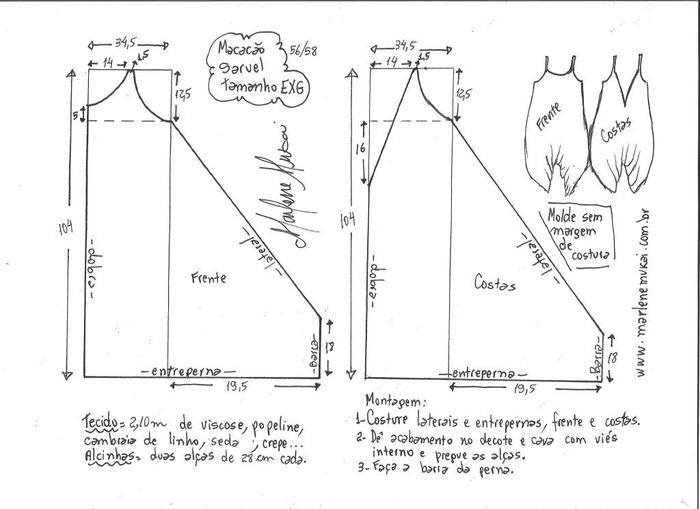 Macacão
saruel
tamanho EXG
56/58
34,5
14
1,5
12,5
5
104
-dobra-
Marlene Mukai
-lateral-
Frente
-Barra-
18
-entreperna-
19,5
34,5
14
1,5
12,5
16
104
-dobra-
-lateral-
Costas
-Barra-
18
-entreperna-
19,5
Frente
Costas
Molde sem
margem
de
costura
www.marlenemukai.com.br
Tecido= 2,10m de viscose, popeline,
cambraia de linho, seda, crepe...
Alcinhas= duas alças de 28 cm cada.
Montagem:
1- Costure laterais e entrepernas, frente e costas.
2- Dê acabamento no decote e cava com viés
interno e pregue as alças.
3- Faça a barra da perna.